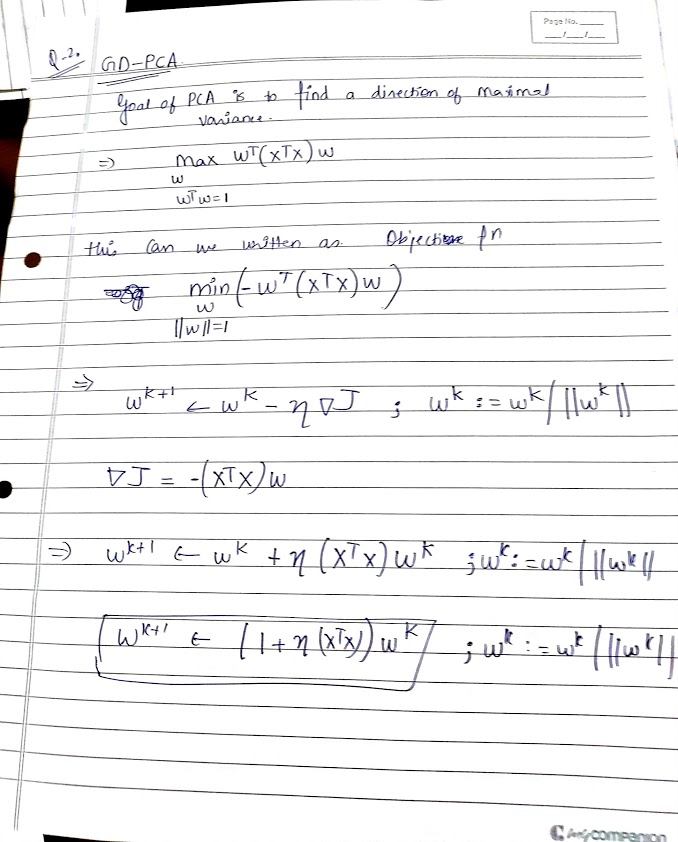 Page No. ____
__/__/__
Q-2.
GD-PCA.
Goal of PCA is to find a direction of maximal
variance.
=> max wᵀ(xᵀx)w
w
wᵀw=1
this can we written as Objective fn
min (-wᵀ(xᵀx)w)
w
||w||=1
=>
wᵏ⁺¹ ← wᵏ - η ∇J ; wᵏ := wᵏ/||wᵏ||
∇J = -(xᵀx)w
=> wᵏ⁺¹ ← wᵏ + η (xᵀx)wᵏ ; wᵏ := wᵏ/||wᵏ||
wᵏ⁺¹ ← (1+η(xᵀx))wᵏ ; wᵏ := wᵏ/||wᵏ||
companion